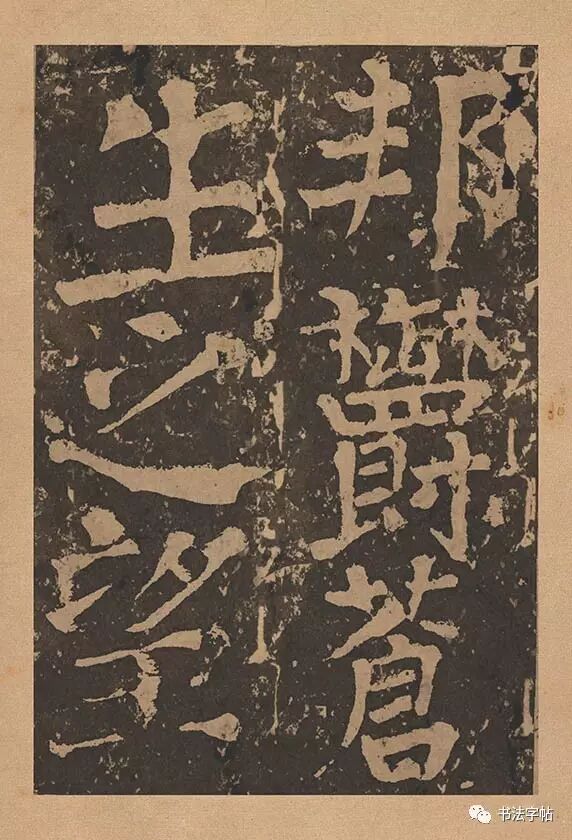 邦欝蒼
生之望
书法字帖